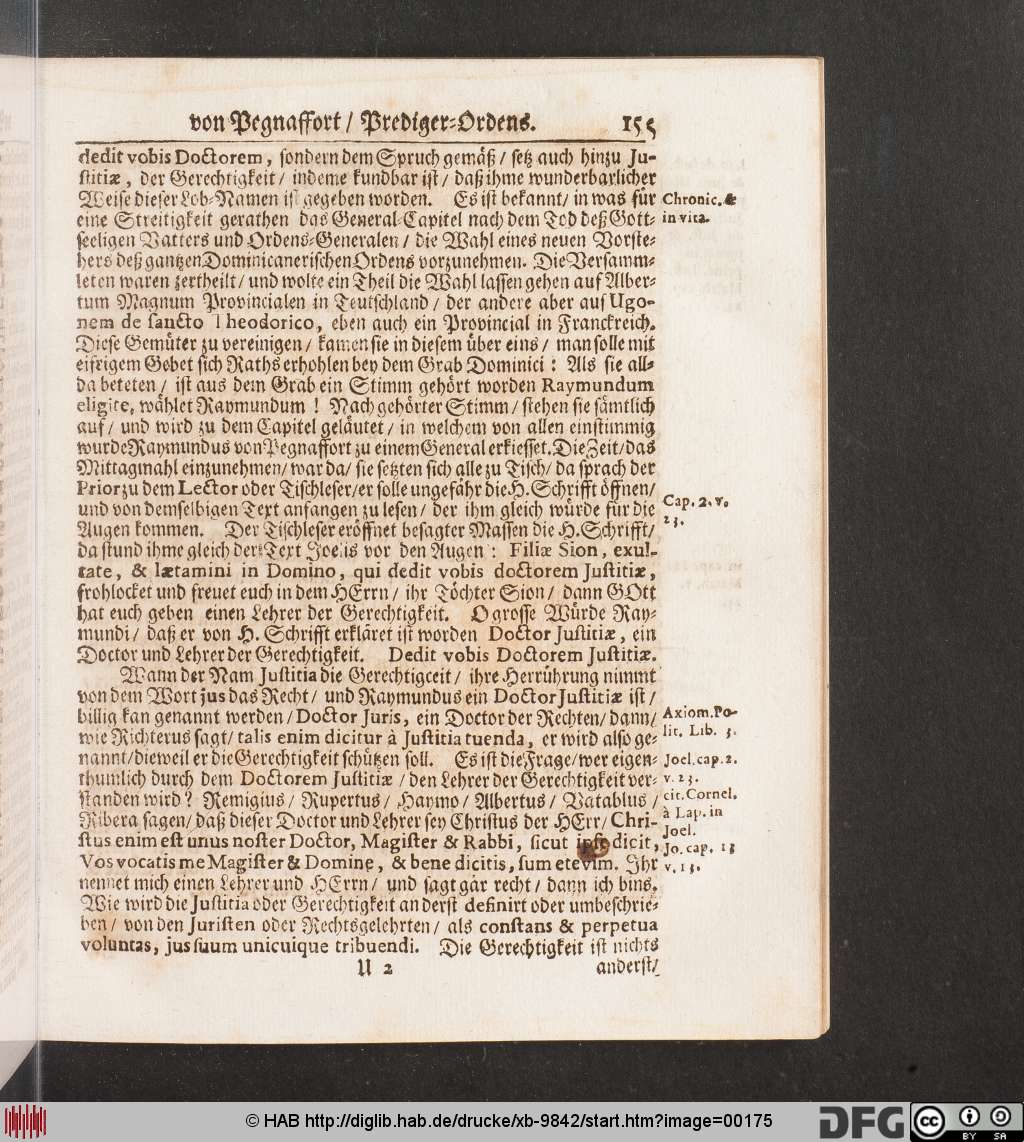 von Pegnaffort / Prediger-Ordens. 155
dedit vobis Doctorem, sondern dem Spruch gemäß / setz auch hinzu Ju-
stitiæ, der Gerechtigkeit / indeme kundbar ist / daß ihme wunderbarlicher
Weise dieser Lob-Namen ist gegeben worden. Es ist bekannt / in was für
eine Streitigkeit gerathen das General-Capitel nach dem Tod deß Gott-
seeligen Vatters und Ordens-Generalen / die Wahl eines neuen Vorste-
hers deß gantzen Dominicanerischen Ordens vorzunehmen. Die Versamm-
leten waren zertheilt / und wolte ein Theil die Wahl lassen gehen auf Alber-
tum Magnum Provincialen in Teutschland / der andere aber auf Ugo-
nem de sancto Theodorico, eben auch ein Provincial in Franckreich.
Diese Gemüter zu vereinigen / kamen sie in diesem über eins / man solle mit
eifrigem Gebet sich Raths erhohlen bey dem Grab Dominici : Als sie all-
da beteten / ist aus dem Grab ein Stimm gehört worden Raymundum
eligite, wählet Raymundum ! Nach gehörter Stimm / stehen sie sämtlich
auf / und wird zu dem Capitel geläutet / in welchem von allen einstimmig
wurde Raymundus von Pegnaffort zu einem General erkiesset. Die Zeit / das
Mittagmahl einzunehmen / war da / sie setzten sich alle zu Tisch / da sprach der
Prior zu dem Lector oder Tischleser / er solle ungefähr die H. Schrifft öffnen /
und von demselbigen Text anfangen zu lesen / der ihm gleich würde für die
Augen kommen. Der Tischleser eröffnet besagter Massen die H. Schrifft /
da stund ihme gleich der Text Joelis vor den Augen : Filiæ Sion, exul-
tate, & lætamini in Domino, qui dedit vobis doctorem Justitiæ,
frohlocket und freuet euch in dem HErrn / ihr Töchter Sion / dann GOtt
hat euch geben einen Lehrer der Gerechtigkeit. O grosse Würde Ray-
mundi / daß er von H. Schrifft erkläret ist worden Doctor Justitiæ, ein
Doctor und Lehrer der Gerechtigkeit. Dedit vobis Doctorem Justitiæ.
Wann der Nam Justitia die Gerechtigceit / ihre Herrührung nimmt
von dem Wort jus das Recht / und Raymundus ein Doctor Justitiæ ist /
billig kan genannt werden / Doctor Juris, ein Doctor der Rechten / dann /
wie Richterus sagt / talis enim dicitur à Justitia tuenda, er wird also ge-
nannt / dieweil er die Gerechtigkeit schützen soll. Es ist die Frage / wer eigen-
thumlich durch dem Doctorem Justitiæ / den Lehrer der Gerechtigkeit ver-
standen wird ? Remigius / Rupertus / Haymo / Albertus / Vatablus /
Ribera sagen / daß dieser Doctor und Lehrer sey Christus der HErr / Chri-
stus enim est unus noster Doctor, Magister & Rabbi, sicut ipse dicit,
Vos vocatis me Magister & Domine, & bene dicitis, sum etevim. Ihr
nennet mich einen Lehrer und HErrn / und sagt gar recht / dann ich bins.
Wie wird die Justitia oder Gerechtigkeit anderst definirt oder umbeschrie-
ben / von den Juristen oder Rechtsgelehrten / als constans & perpetua
voluntas, jus suum unicuique tribuendi. Die Gerechtigkeit ist nichts
U 2 anderst /
Chronic. &
in vita.
Cap. 2. v.
23.
Axiom. Po-
lit. Lib. 3.
Joel. cap. 2.
v. 23.
cit. Cornel.
à Lap. in
Joel.
Jo. cap. 13
v. 13.
© HAB http://diglib.hab.de/drucke/xb-9842/start.htm?image=00175
DFG
cc
BY SA